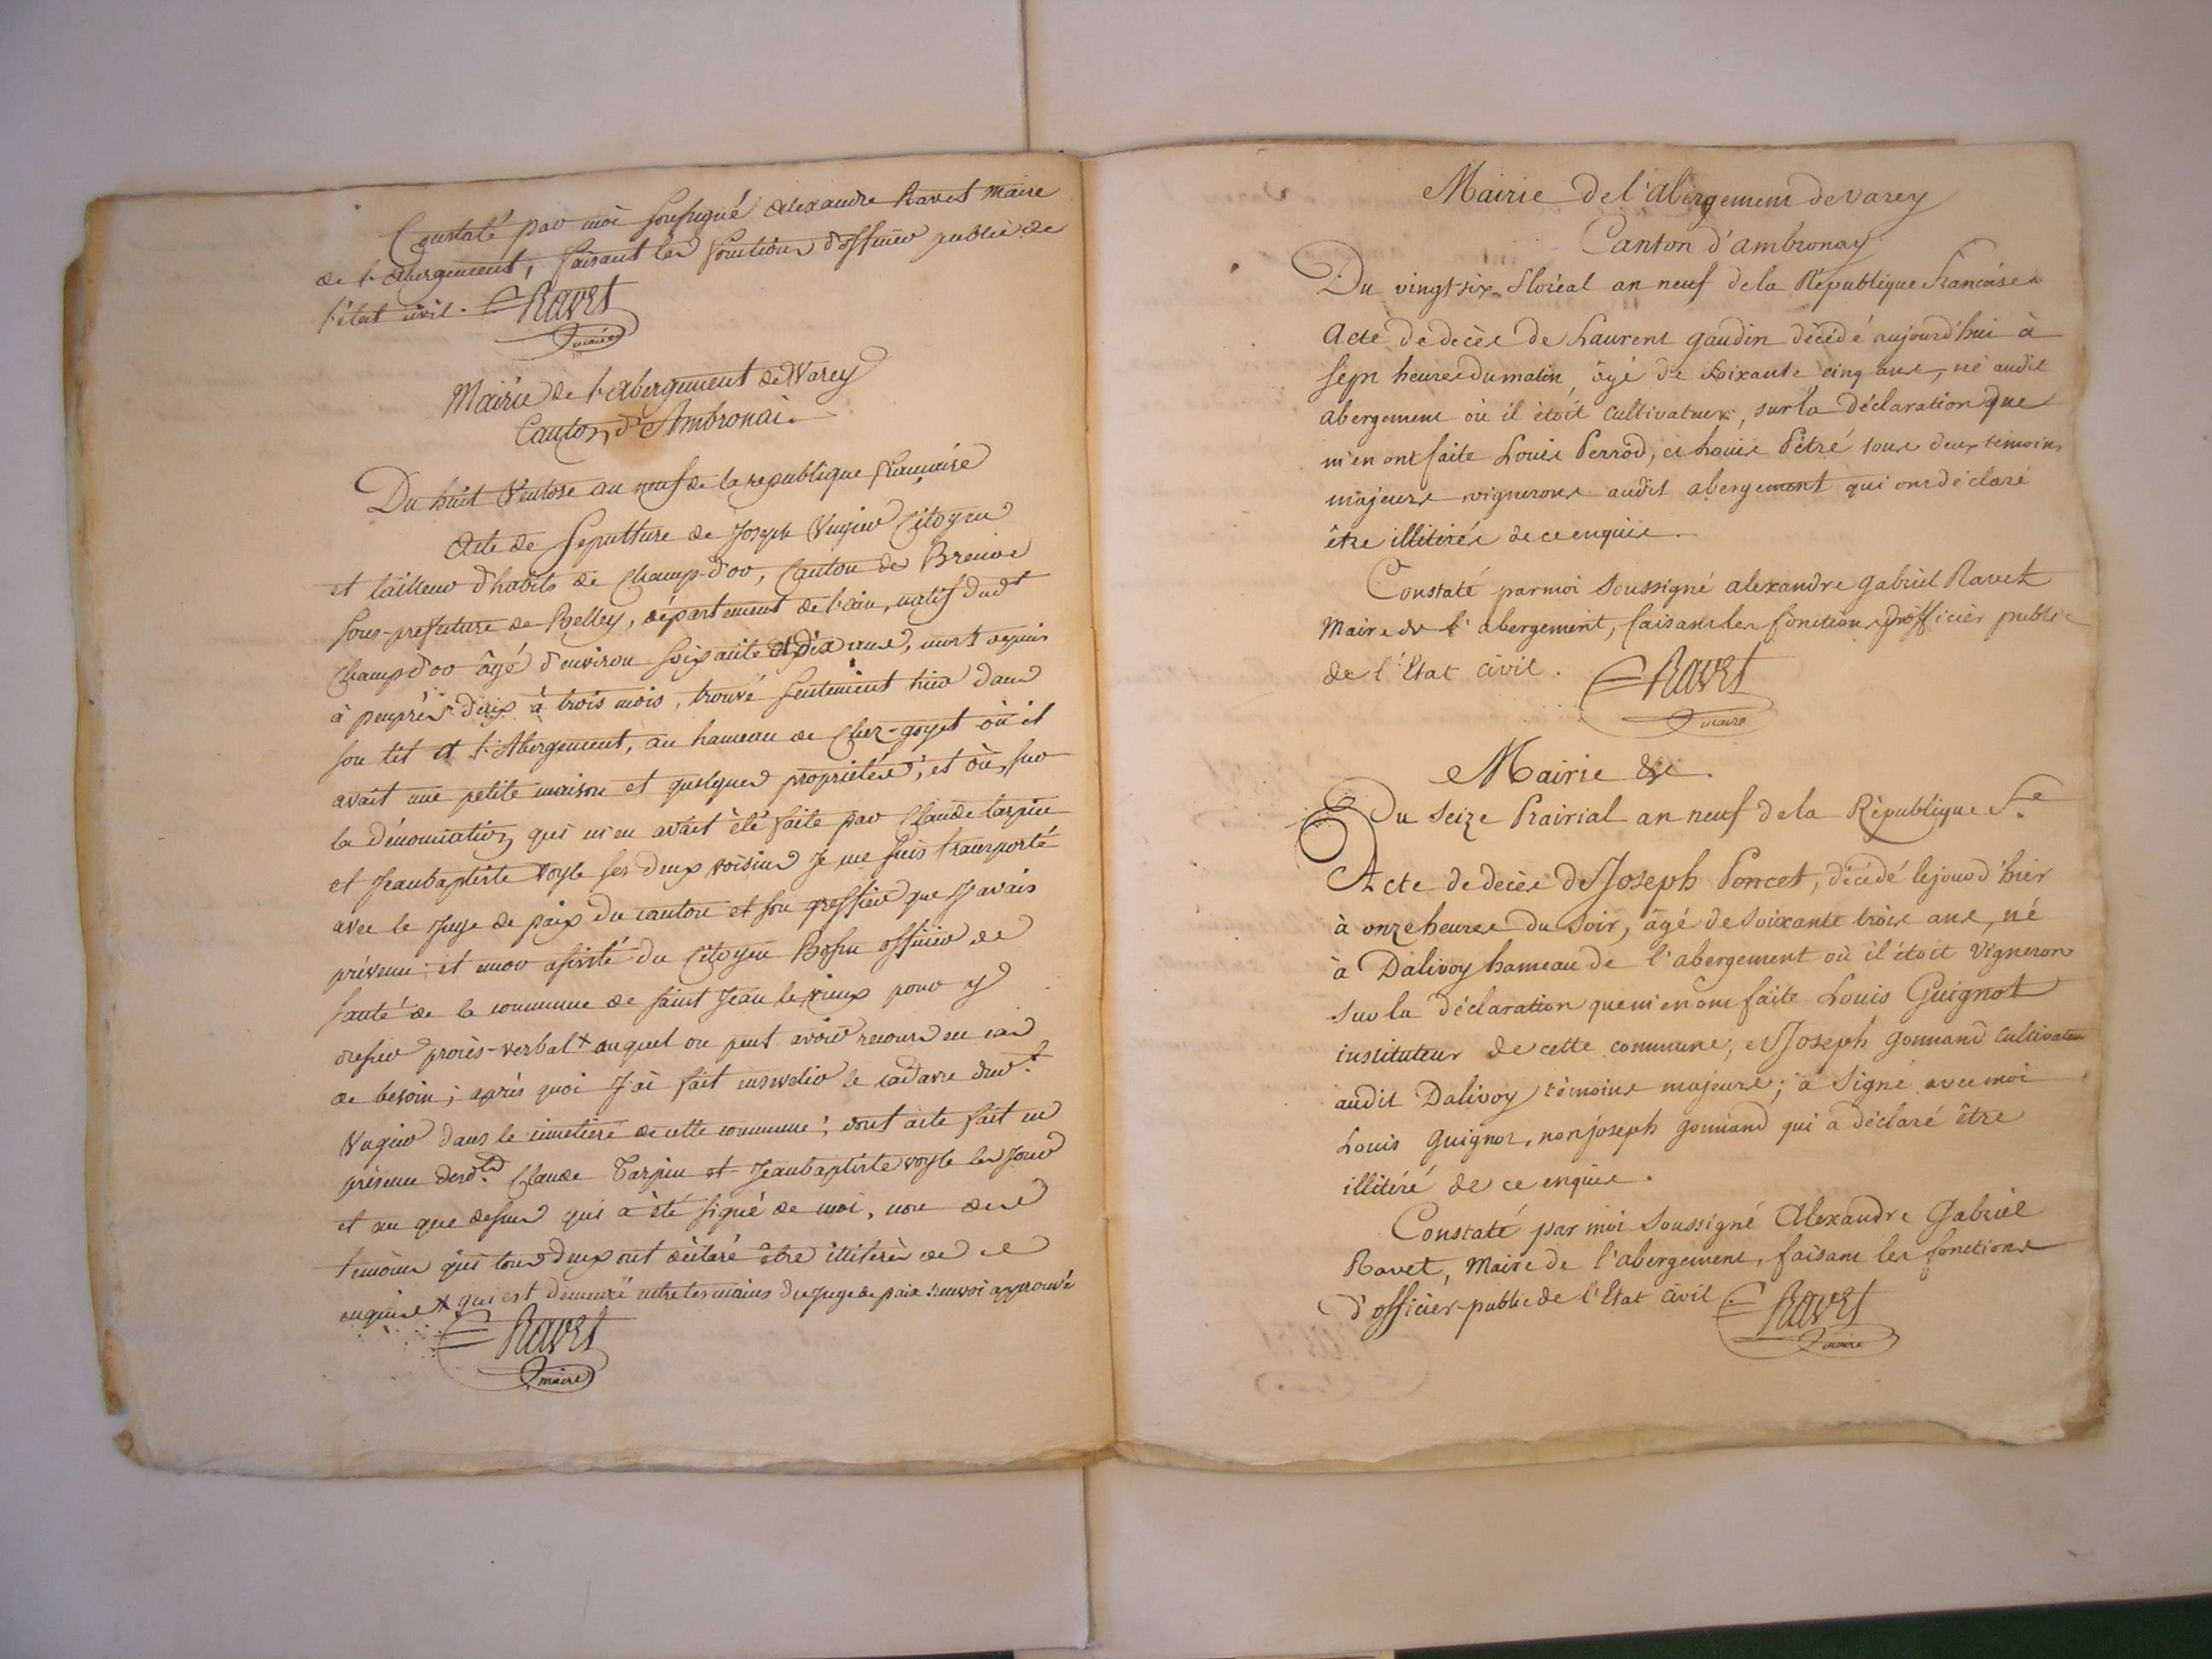 Constaté par moi soussigné alexandre Ravet maire
de l'abergement, faisant les fonctions d'officier public de
l'état civil. Ravet
maire
Mairie de l'abergement de Varey
Canton d'Ambronai.
Du huit Ventose an neuf de la republique française
Acte de sepulture de Joseph Vugier Citoyen
et tailleur d'habits de Champ-d'or, Canton de
sous-prefecture de Belley, département de l'ain, natif dudt
Champ-d'or âgé d'environ soixante et dix ans, mort depuis
à peuprès deux à trois mois, trouvé seulement hier dans
son lit à l'Abergement, au hameau de Chez-goyet où il
avait une petite maison et quelques propriétés, et où, sur
la dénonciation qui m'en avait été faite par Claude tarpin
et Jeanbaptiste voyle ses deux voisins Je me suis transporté
avec le Juge de paix du canton et son greffier que J'avais
prévenu; et encor assisté du Citoyen officier de
santé de la commune de saint Jean le vieux pour y
dresser procès-verbal + auquel on peut avoir recours en cas
de besoin; après quoi J'ai fait ensevelir le cadavre dudt
Vugier dans le cimetiere de cette commune; dont acte fait en
présence desdts Claude Tarpin et Jeanbaptiste voyle les Jour
et an que dessus qui a été signé de moi, non des
temoins qui tous deux ont déclaré être illiterés de ce
enquis + qui est demeuré entre les mains du juge de paix renvoi approuvé
Ravet
maire
Mairie de l'abergement de varey
Canton d'ambronay
Du vingt-six floréal an neuf de la République francaise
Acte de decès de Laurent gaudin décédé aujourd'hui à
sept heures du matin, âgé de soixante cinq ans, né audit
abergement où il étoit cultivateur, sur la déclaration que
m'en ont faite Louis Perrod, et Louis Pétré tous deux témoins
majeurs vignerons audit abergement qui ont déclaré
être illitirés de ce enquis.
Constaté par moi soussigné alexandre gabriel Ravet
Maire de l'abergement, faisant les fonctions d'officier public
de l'Etat civil. Ravet
maire
Mairie &c.
Du seize Prairial an neuf de la République f.e
Acte de decès de Joseph Poncet, décédé le jour d'hier
à onze heures du soir, âgé de soixante trois ans, né
à Dalivoy hameau de l'abergement où il étoit vigneron
sur la déclaration que m'en ont faite Louis Guignot
instituteur de cette commune, et Joseph gonnand cultivateur
audit Dalivoy témoins majeurs; a signé avec moi
Louis Guignot, non joseph gonnand qui a déclaré être
illitéré de ce enquis.
Constaté par moi soussigné Alexandre Gabriel
Ravet, Maire de l'abergement, faisant les fonctions
d'officier public de l'Etat civil. Ravet
maire